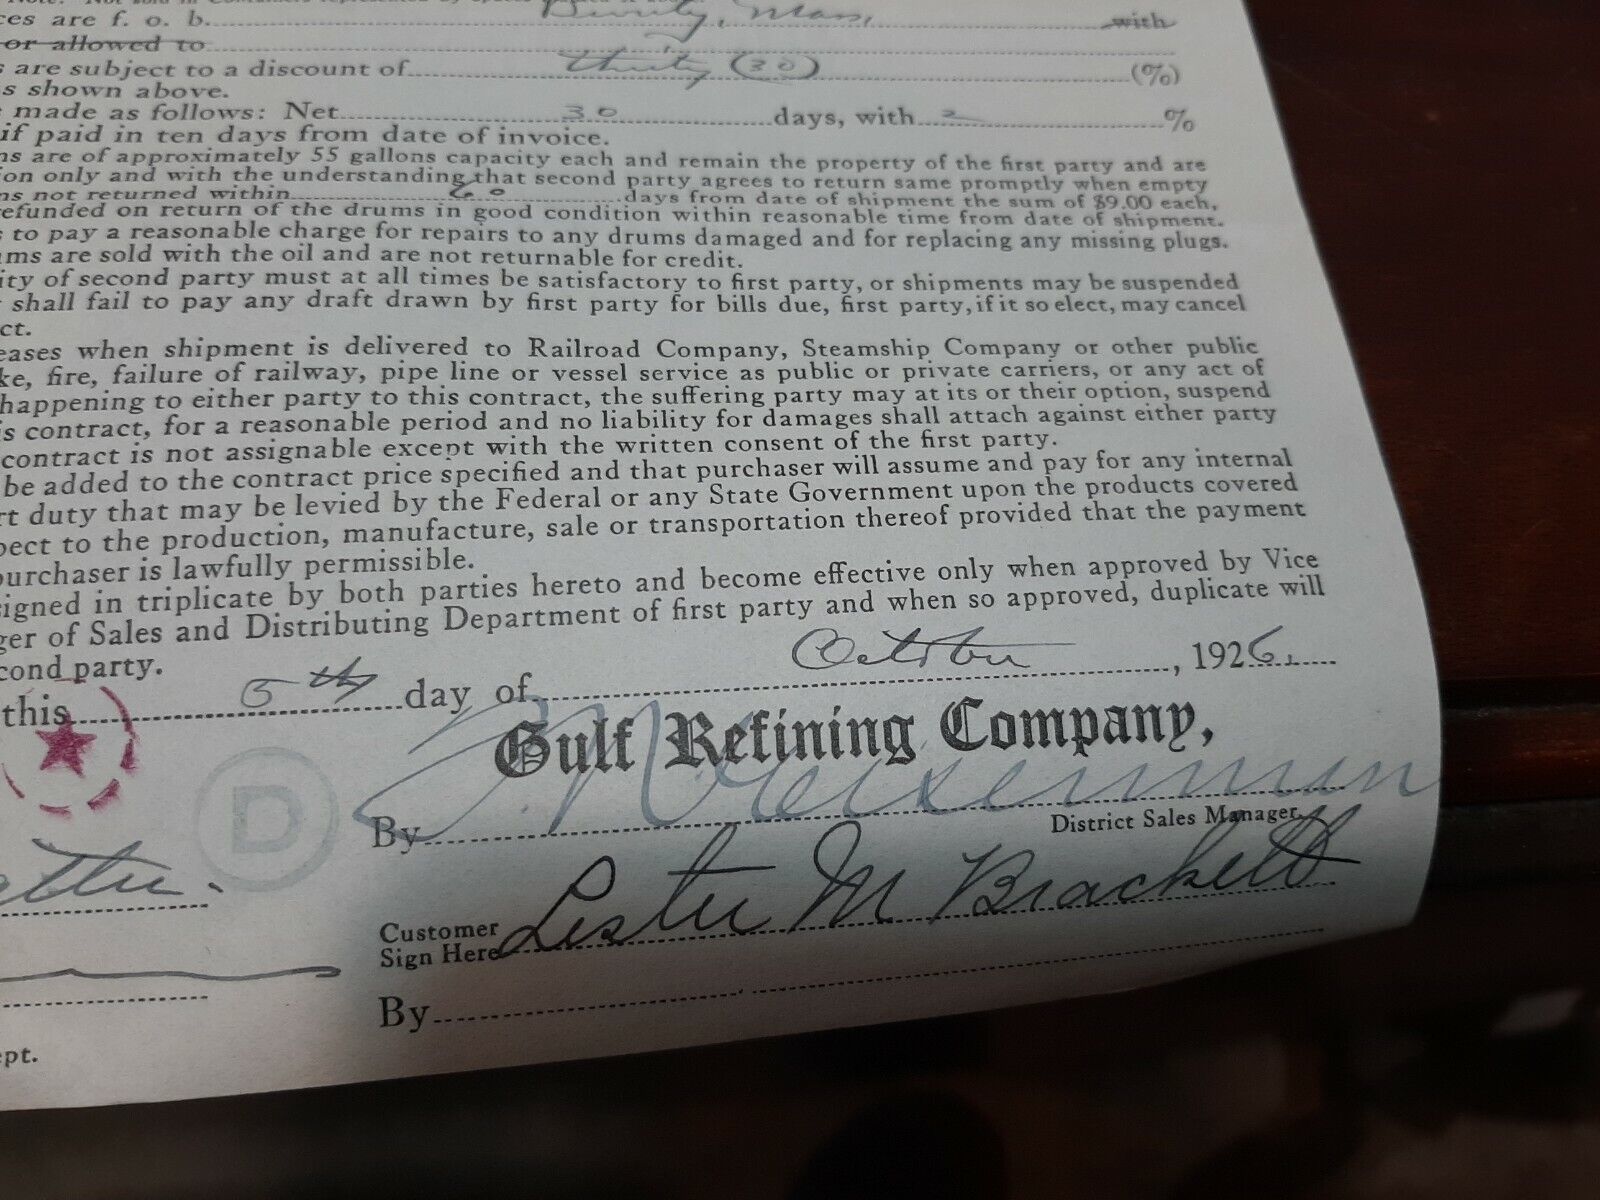 ces are f. o. b. Beverly, Mass, with
or allowed to
s are subject to a discount of thirty (30) (%)
s shown above.
made as follows: Net 30 days, with 2 %
if paid in ten days from date of invoice.
ns are of approximately 55 gallons capacity each and remain the property of the first party and are
on only and with the understanding that second party agrees to return same promptly when empty
ns not returned within 60 days from date of shipment the sum of $9.00 each,
refunded on return of the drums in good condition within reasonable time from date of shipment.
s to pay a reasonable charge for repairs to any drums damaged and for replacing any missing plugs.
ums are sold with the oil and are not returnable for credit.
ity of second party must at all times be satisfactory to first party, or shipments may be suspended
shall fail to pay any draft drawn by first party for bills due, first party, if it so elect, may cancel
ct.
eases when shipment is delivered to Railroad Company, Steamship Company or other public
ke, fire, failure of railway, pipe line or vessel service as public or private carriers, or any act of
happening to either party to this contract, the suffering party may at its or their option, suspend
is contract, for a reasonable period and no liability for damages shall attach against either party
contract is not assignable except with the written consent of the first party.
be added to the contract price specified and that purchaser will assume and pay for any internal
rt duty that may be levied by the Federal or any State Government upon the products covered
pect to the production, manufacture, sale or transportation thereof provided that the payment
purchaser is lawfully permissible.
igned in triplicate by both parties hereto and become effective only when approved by Vice
ger of Sales and Distributing Department of first party and when so approved, duplicate will
cond party.
this 5th day of October, 1926.
Gulf Refining Company,
D
By
District Sales Manager.
Customer
Sign Here Lester M Brackett
By
ept.